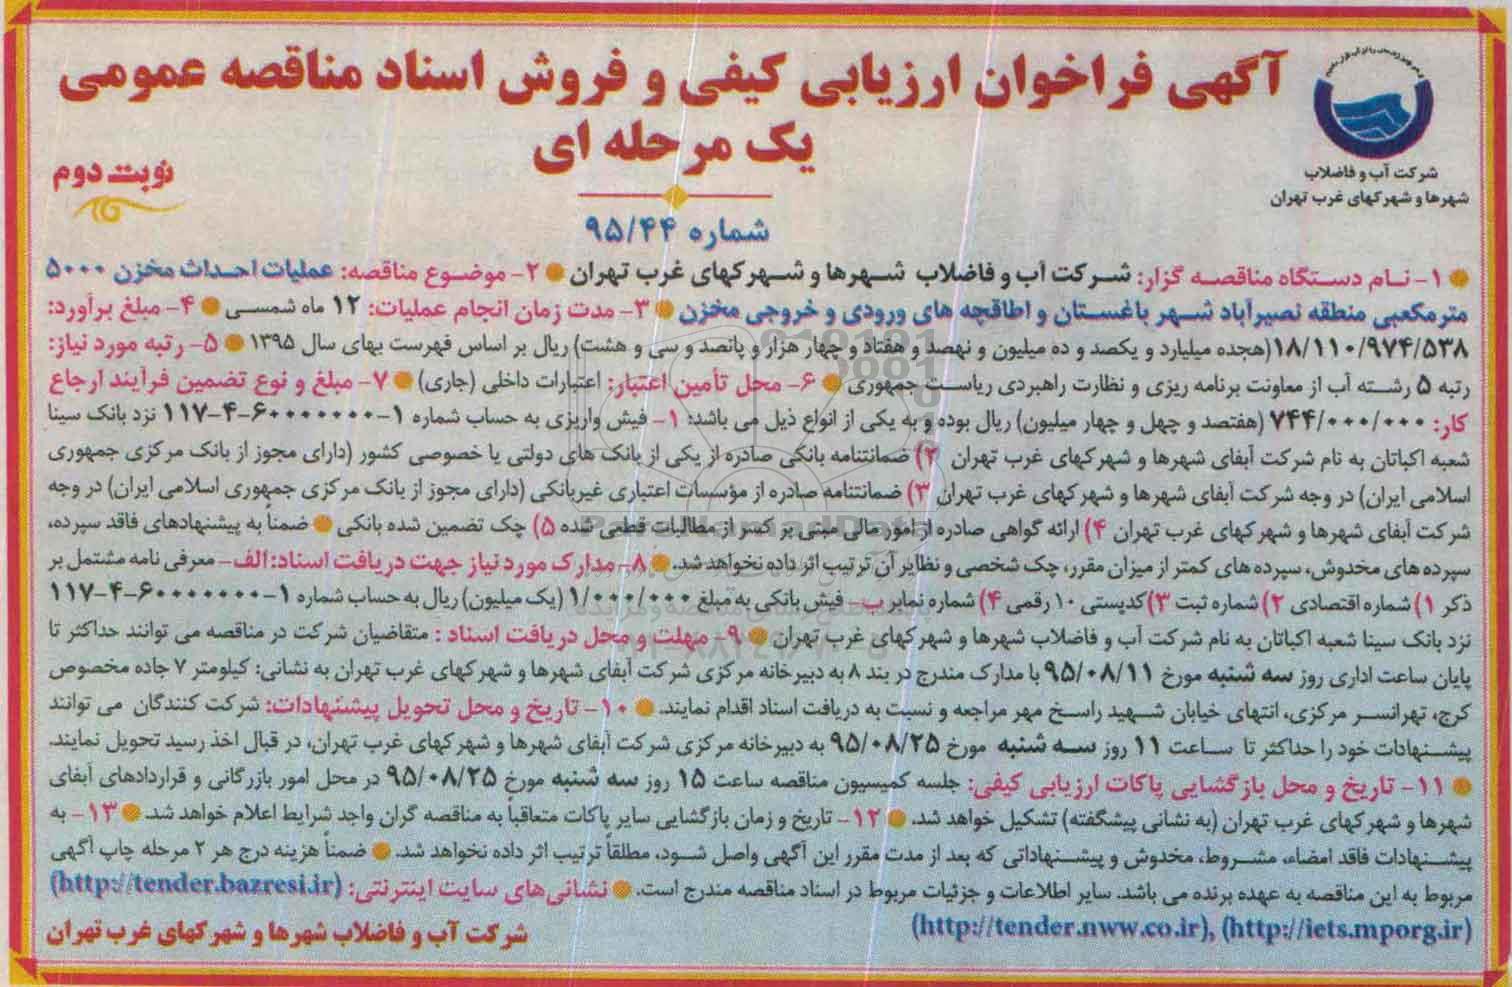 آگهی فراخوان ارزیابی کیفی و فروش اسناد مناقصه عمومی
یک مرحله ای
شرکت آب و فاضلاب
شهرها و شهرکهای غرب تهران
نوبت دوم
شماره ۹۵/۴۴
۱- نـام دسـتگاه مناقصـه گزار: شـرکت آب و فاضلاب شـهرها و شـهرکهای غرب تهران ۲- موضـوع مناقصه: عملیات احـداث مخزن ۵۰۰۰
مترمکعبی منطقه نصیرآباد شـهر باغسـتان و اطاقچه های ورودی و خروجی مخزن ۳- مدت زمان انجام عملیات: ۱۲ ماه شمسـی ۴- مبلغ برآورد:
۱۸/۱۱۰/۹۷۴/۵۳۸(هجده میلیارد و یکصد و ده میلیون و نهصد و هفتاد و چهار هزار و پانصد و سی و هشت) ریال بر اساس فهرست بهای سال ۱۳۹۵ ۵- رتبه مورد نیاز:
رتبه ۵ رشـته آب از معاونت برنامه ریزی و نظارت راهبردی ریاسـت جمهوری ۶- محل تأمین اعتبار: اعتبارات داخلی (جاری) ۷- مبلغ و نوع تضمین فرآیند ارجاع
کار: ۷۴۴/۰۰۰/۰۰۰ (هفتصد و چهل و چهار میلیون) ریال بوده و به یکی از انواع ذیل می باشد: ۱- فیش واریزی به حساب شماره ۱-۶۰۰۰۰۰۰۰-۴-۱۱۷ نزد بانک سینا
شعبه اکباتان به نام شرکت آبفای شهرها و شهرکهای غرب تهران ۲) ضمانتنامه بانکی صادره از یکی از بانک های دولتی یا خصوصی کشور (دارای مجوز از بانک مرکزی جمهوری
اسلامی ایران) در وجه شرکت آبفای شهرها و شهرکهای غرب تهران ۳) ضمانتنامه صادره از مؤسسات اعتباری غیربانکی (دارای مجوز از بانک مرکزی جمهوری اسلامی ایران) در وجه
شرکت آبفای شهرها و شهرکهای غرب تهران ۴) ارائه گواهی صادره از امور مالی مبنی بر کسر از مطالبات قطعی شده ۵) چک تضمین شده بانکی ضمناً به پیشنهادهای فاقد سپرده،
سپرده های مخدوش، سپرده های کمتر از میزان مقرر، چک شخصی و نظایر آن ترتیب اثر داده نخواهد شد. ۸- مدارک مورد نیاز جهت دریافت اسناد: الف- معرفی نامه مشتمل بر
ذکر ۱) شماره اقتصادی ۲) شماره ثبت ۳) کدپستی ۱۰ رقمی ۴) شماره نمابر ب- فیش بانکی به مبلغ ۱/۰۰۰/۰۰۰ (یک میلیون) ریال به حساب شماره ۱-۶۰۰۰۰۰۰۰-۴-۱۱۷
نزد بانک سینا شعبه اکباتان به نام شرکت آب و فاضلاب شهرها و شهرکهای غرب تهران ۹- مهلت و محل دریافت اسناد : متقاضیان شرکت در مناقصه می توانند حداکثر تا
پایان ساعت اداری روز سه شنبه مورخ ۹۵/۰۸/۱۱ با مدارک مندرج در بند ۸ به دبیرخانه مرکزی شرکت آبفای شهرها و شهرکهای غرب تهران به نشانی: کیلومتر ۷ جاده مخصوص
کرج، تهرانسـر مرکزی، انتهای خیابان شـهید راسـخ مهر مراجعه و نسـبت به دریافت اسناد اقدام نمایند. ۱۰- تاریخ و محل تحویل پیشنهادات: شرکت کنندگان می توانند
پیشـنهادات خود را حداکثر تا سـاعت ۱۱ روز سـه شنبه مورخ ۹۵/۰۸/۲۵ به دبیرخانه مرکزی شرکت آبفای شهرها و شهرکهای غرب تهران، در قبال اخذ رسید تحویل نمایند.
۱۱- تاریخ و محل بازگشایی پاکات ارزیابی کیفی: جلسه کمیسیون مناقصه ساعت ۱۵ روز سه شنبه مورخ ۹۵/۰۸/۲۵ در محل امور بازرگانی و قراردادهای آبفای
شهرها و شهرکهای غرب تهران (به نشانی پیشگفته) تشکیل خواهد شد. ۱۲- تاریخ و زمان بازگشایی سایر پاکات متعاقباً به مناقصه گران واجد شرایط اعلام خواهد شد. ۱۳- به
پیشـنهادات فاقد امضاء، مشـروط، مخدوش و پیشـنهاداتی که بعد از مدت مقرر این آگهی واصل شـود، مطلقاً ترتیب اثر داده نخواهد شد. ضمناً هزینه درج هر ۲ مرحله چاپ آگهی
مربوط به این مناقصه به عهده برنده می باشد. سایر اطلاعات و جزئیات مربوط در اسناد مناقصه مندرج است. نشانی‌های سایت اینترنتی: (http://tender.bazresi.ir)
(http://tender.nww.co.ir), (http://iets.mporg.ir)
شرکت آب و فاضلاب شهرها و شهرکهای غرب تهران